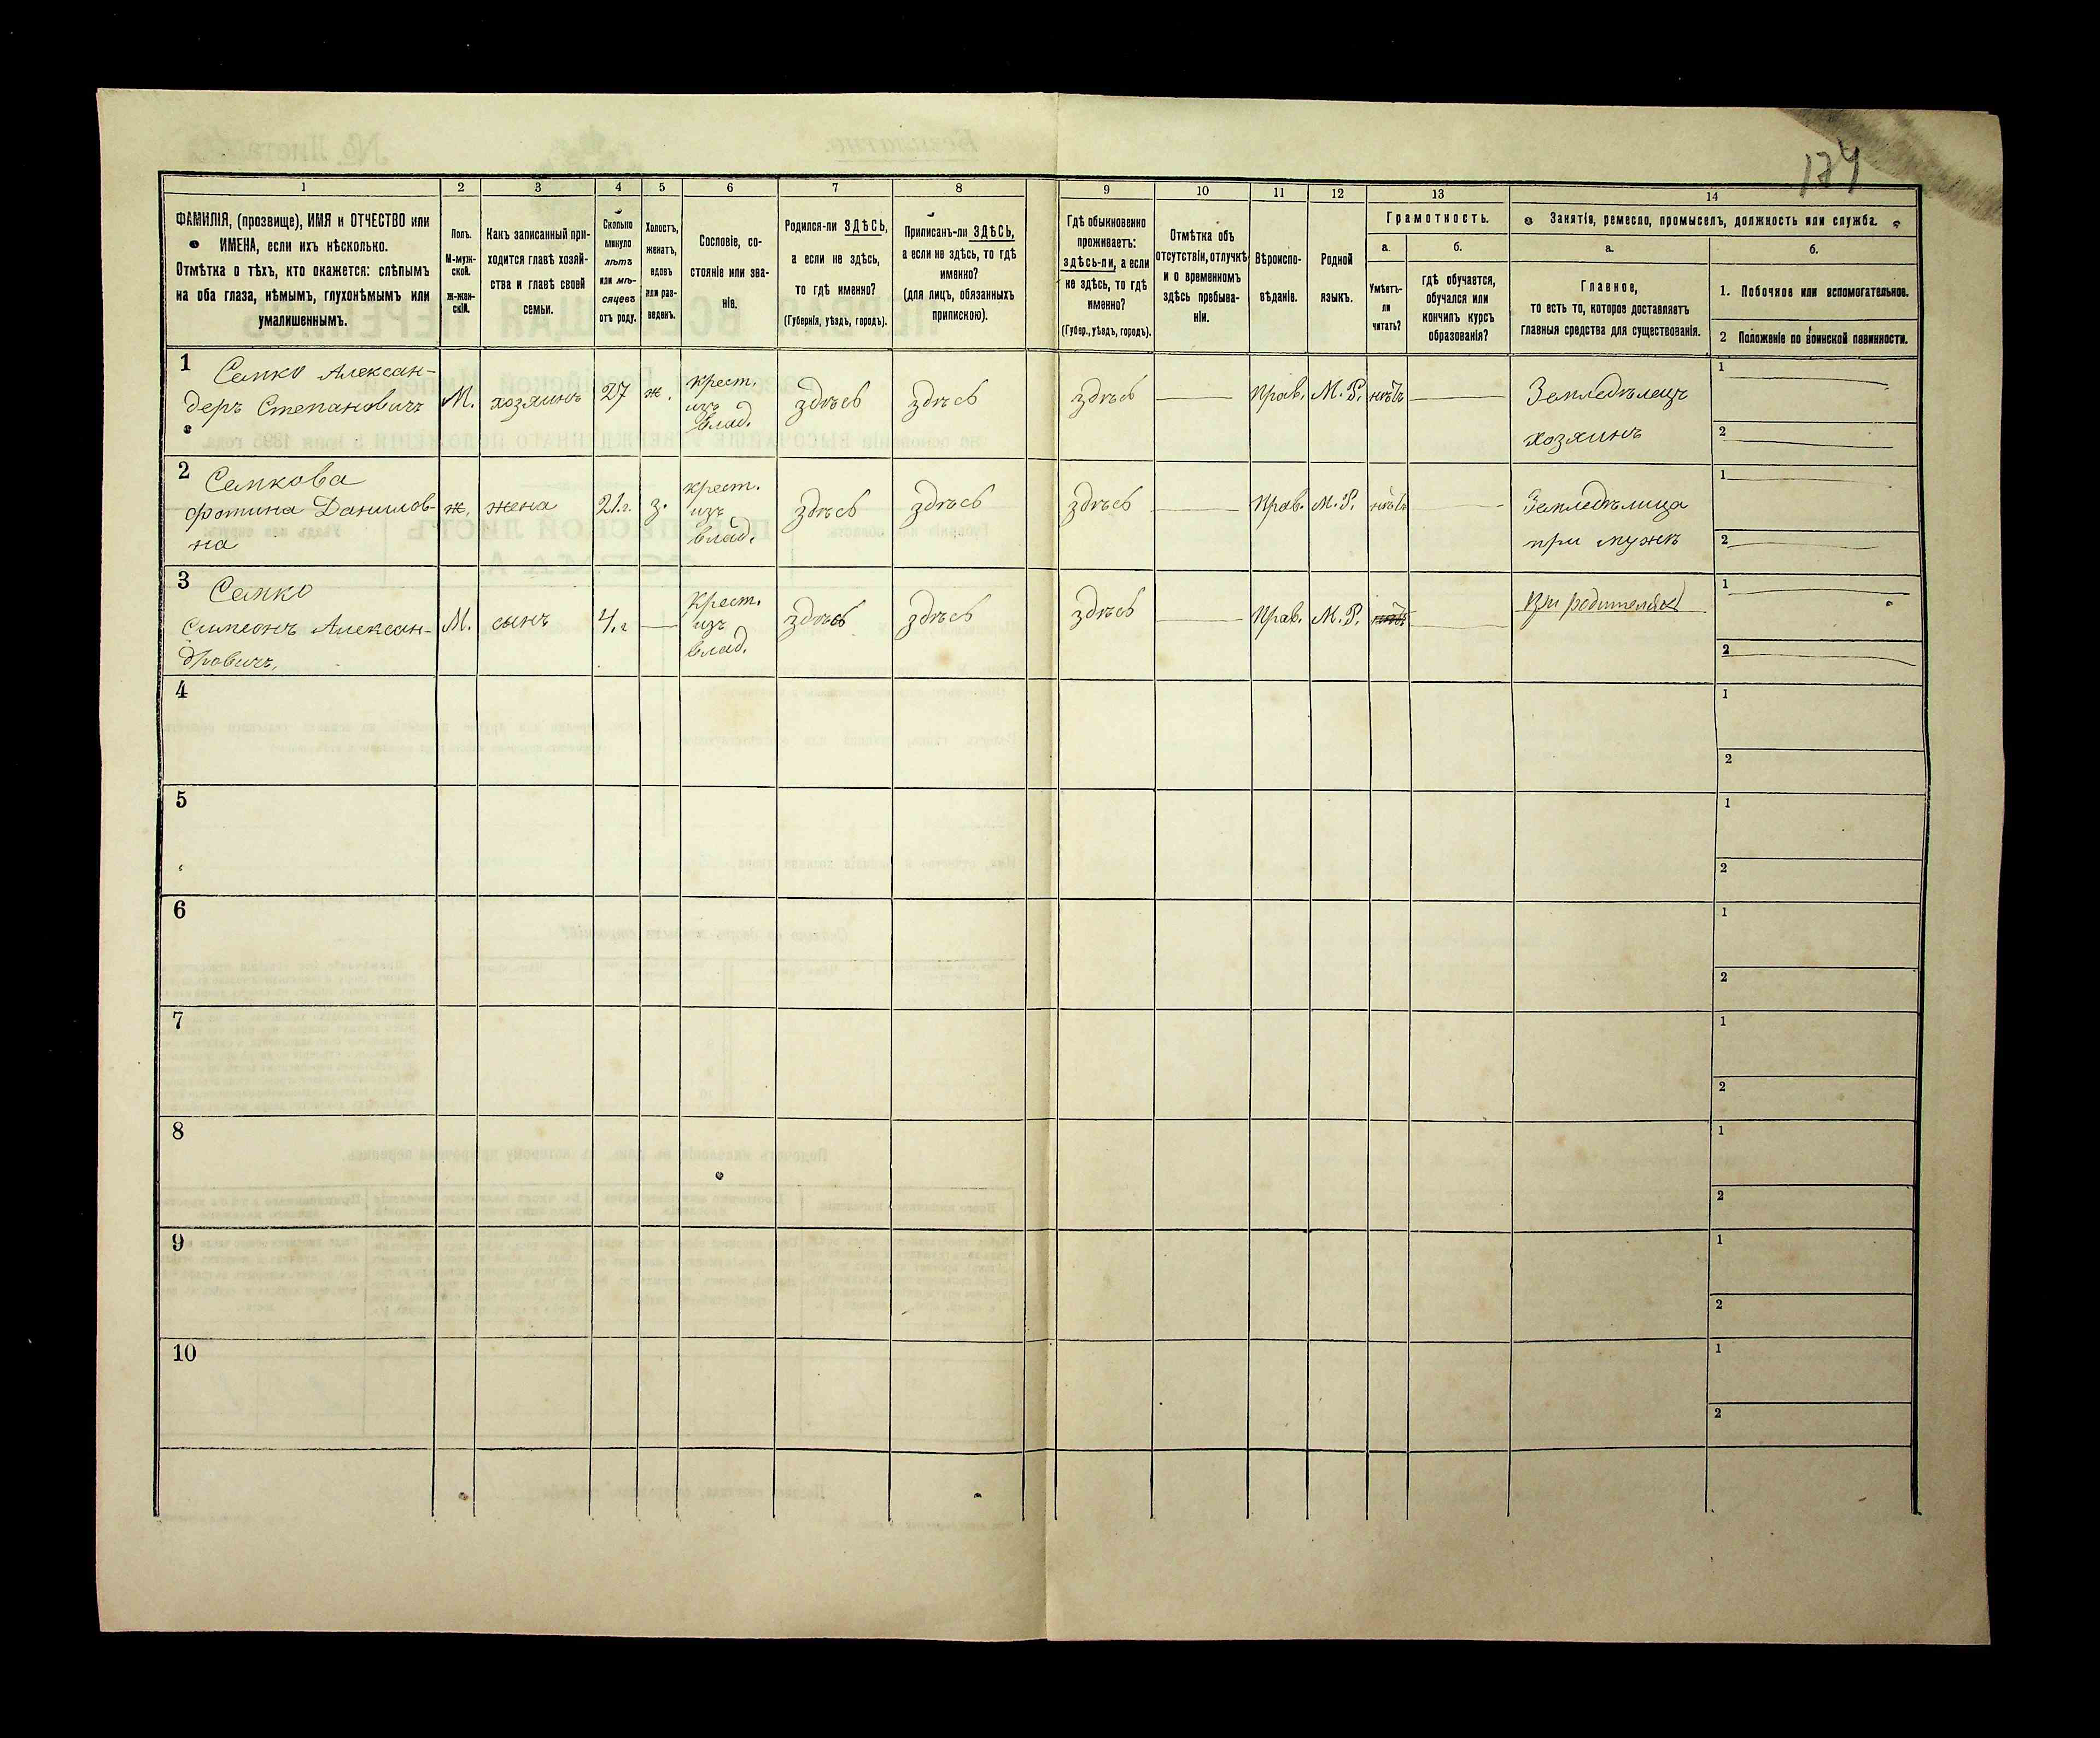 174
1 2 3 4 5 6 7 8 9 10 11 12 13 14
ФАМИЛІЯ, (прозвище), ИМЯ и ОТЧЕСТВО или
ИМЕНА, если ихъ нѣсколько.
Отмѣтка о тѣхъ, кто окажется: слѣпымъ
на оба глаза, нѣмымъ, глухонѣмымъ или
умалишеннымъ.
Полъ.
М-муж-
ской.
Ж-жен-
скій.
Какъ записанный при-
ходится главѣ хозяй-
ства и главѣ своей
семьи.
Сколько
минуло
лѣтъ
или мѣ-
сяцевъ
отъ роду.
Холостъ,
женатъ,
вдовъ
или раз-
веденъ.
Сословіе, со-
стояніе или зва-
ніе.
Родился-ли ЗДѢСЬ,
а если не здѣсь,
то гдѣ именно?
(Губернія, уѣздъ, городъ).
Приписанъ-ли ЗДѢСЬ,
а если не здѣсь, то гдѣ
именно?
(для лицъ, обязанныхъ
припискою).
Гдѣ обыкновенно
проживаетъ:
здѣсь-ли, а если
не здѣсь, то гдѣ
именно?
(Губер., уѣздъ, городъ).
Отмѣтка объ
отсутствіи, отлучкѣ
и о временномъ
здѣсь пребыва-
ніи.
Вѣроиспо-
вѣданіе.
Родной
языкъ.
Грамотность.
а. б.
Умѣетъ-
ли
читать?
гдѣ обучается,
обучался или
кончилъ курсъ
образованія?
Занятія, ремесло, промыселъ, должность или служба.
а. б.
Главное,
то есть то, которое доставляетъ
главныя средства для существованія.
1. Побочное или вспомогательное.
2 Положеніе по воинской повинности.
1 Семко Алексан-
деръ Степановичъ
М. хозяинъ 27 ж.
крест.
изъ
влад.
здѣсь здѣсь здѣсь Прав. М. Р. нѣтъ
Земледѣлецъ
хозяинъ
1
2
2 Семкова
Фотина Данилов-
на
ж. жена 21.г. з.
крест.
изъ
влад.
здѣсь здѣсь здѣсь Прав. М. Р. нѣтъ
Земледѣлица
при мужѣ
1
2
3 Семко
Симеонъ Алексан-
дровичъ,
М. сынъ 4.г
Крест.
изъ
влад.
здѣсь здѣсь здѣсь Прав. М. Р. нѣтъ
При родителяхъ
1
2
4
1
2
5
1
2
6
1
2
7
1
2
8
1
2
9
1
2
10
1
2